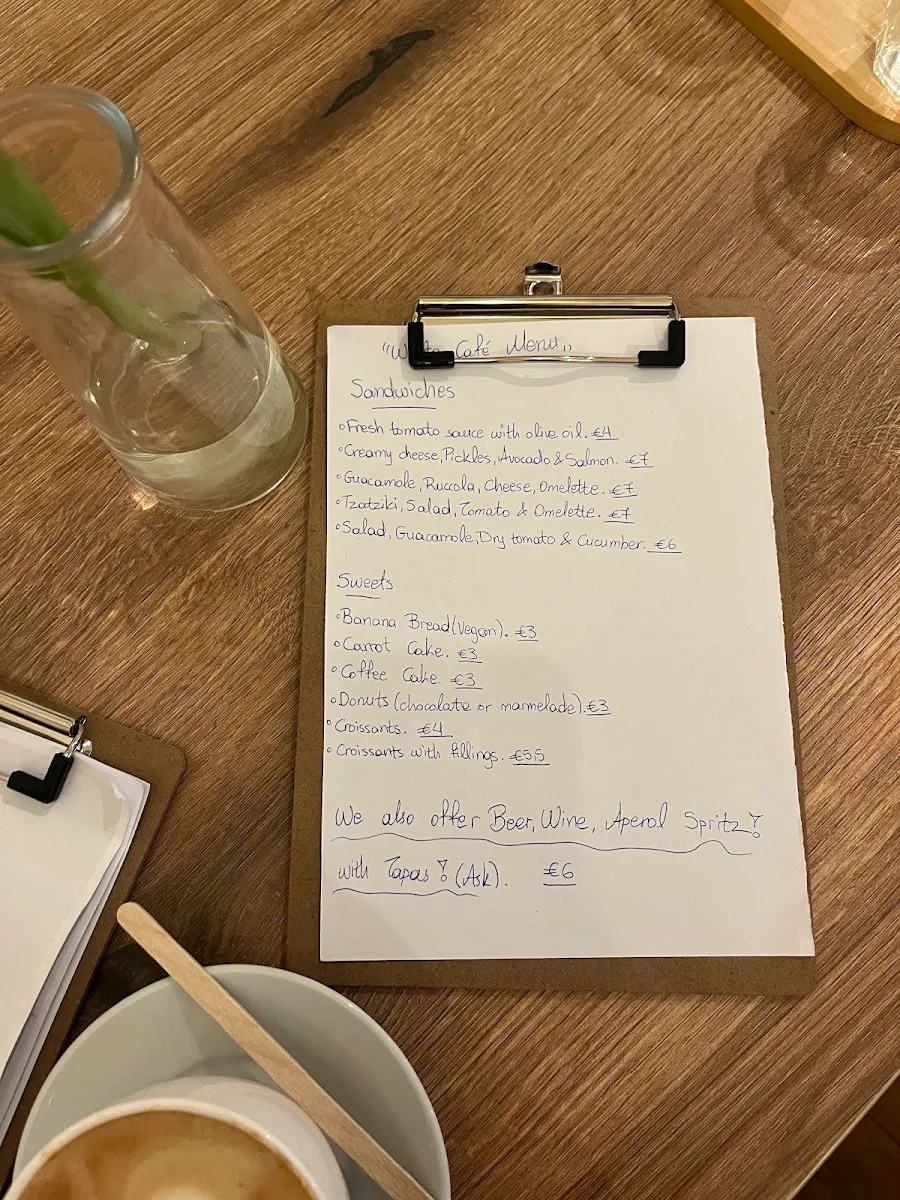 Café Menu„
Sandwiches
°Fresh tomato sauce with olive oil. €4
°Creamy cheese, Pickles, Avocado & Salmon. €7
°Guacamole, Ruccola, Cheese, Omelette. €7
°Tzatziki, Salad, Tomato & Omelette. €7
°Salad, Guacamole, Dry tomato & Cucumber. €6
Sweets
°Banana Bread (Vegan). €3
°Carrot Cake. €3
°Coffee Cake. €3
°Donuts (chocolate or marmelade). €3
°Croissants. €4
°Croissants with fillings. €5,5
We also offer Beer, Wine, Aperol Spritz!
with Tapas! (Ask). €6